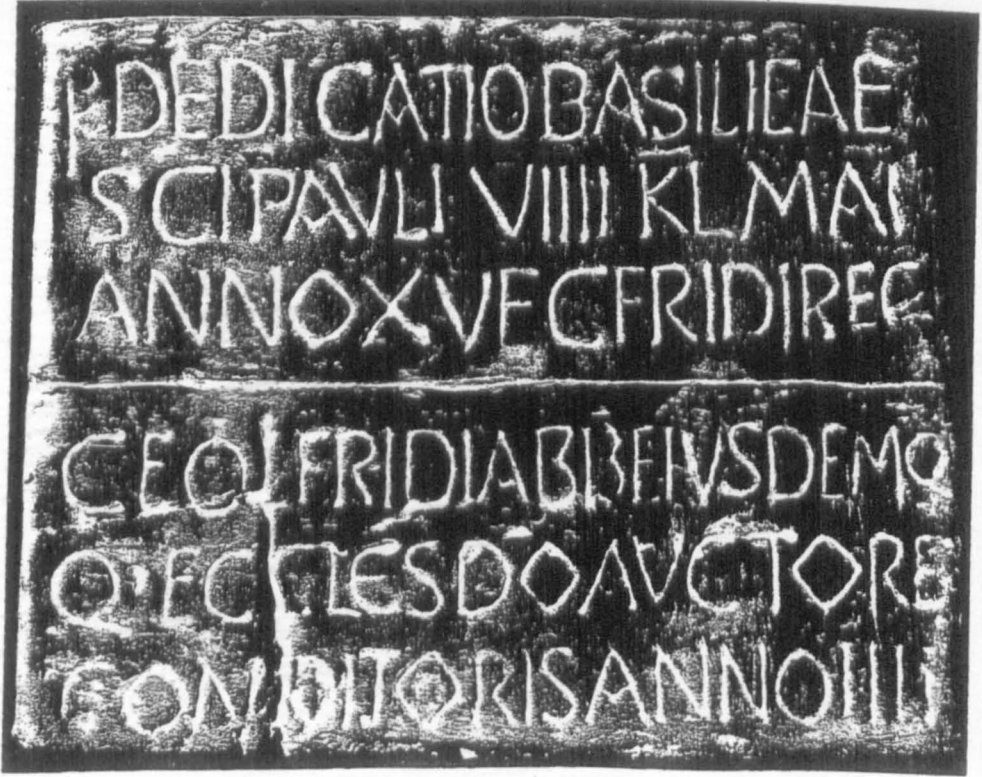 ⳨ DEDICATIO BASILICAE
SCI PAVLI VIIII KL MAI
ANNO XV ECFRIDI REG
CEOLFRIDI ABB EIVSDEMQ
Q ECCLES DO AVCTORE
CONDITORIS ANNO IIII